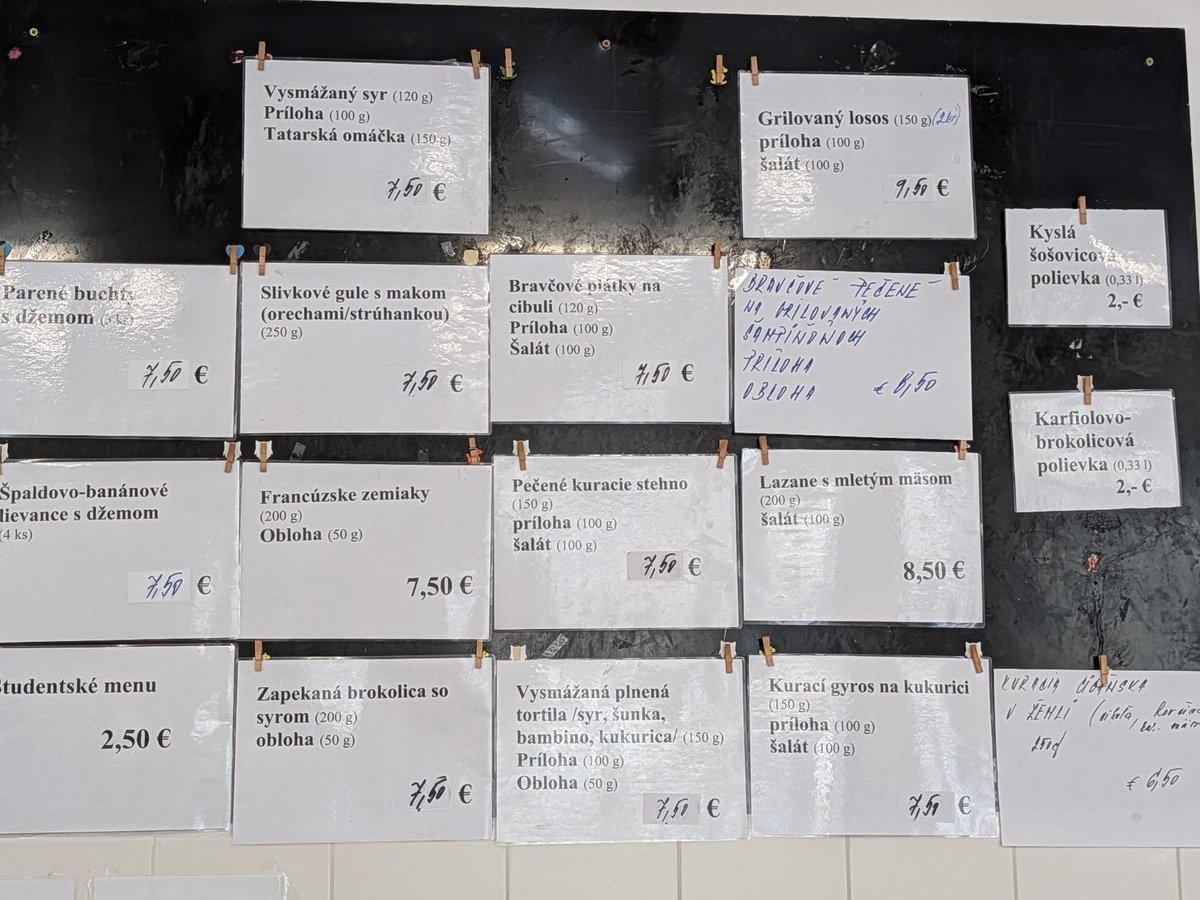 Vysmážaný syr (120 g)
Príloha (100 g)
Tatarská omáčka (150 g)
7,50 €
Grilovaný losos (150 g)
príloha (100 g)
šalát (100 g)
9,50 €
Kyslá
šošovicová
polievka (0,33 l)
2,- €
Parené buchty
s džemom (3 ks)
7,50 €
Slivkové gule s makom
(orechami/strúhankou)
(250 g)
7,50 €
Bravčové plátky na
cibuli (120 g)
Príloha (100 g)
Šalát (100 g)
7,50 €
BRAVČOVÉ PEČENÉ
NA GRILOVANÝCH
ŠAMPIŇÓNOCH
PRÍLOHA
OBLOHA € 8,50
Karfiolovo-
brokolicová
polievka (0,33 l)
2,- €
Špaldovo-banánové
lievance s džemom
(4 ks)
7,50 €
Francúzske zemiaky
(200 g)
Obloha (50 g)
7,50 €
Pečené kuracie stehno
(150 g)
príloha (100 g)
šalát (100 g)
7,50 €
Lazane s mletým mäsom
(200 g)
šalát (100 g)
8,50 €
Študentské menu
2,50 €
Zapekaná brokolica so
syrom (200 g)
obloha (50 g)
7,50 €
Vysmážaná plnená
tortila /syr, šunka,
bambino, kukurica/ (150 g)
Príloha (100 g)
Obloha (50 g)
7,50 €
Kurací gyros na kukurici
(150 g)
príloha (100 g)
šalát (100 g)
7,50 €
KURACIA CIGÁNSKA
V ŽEMLI
250g
€ 6,50